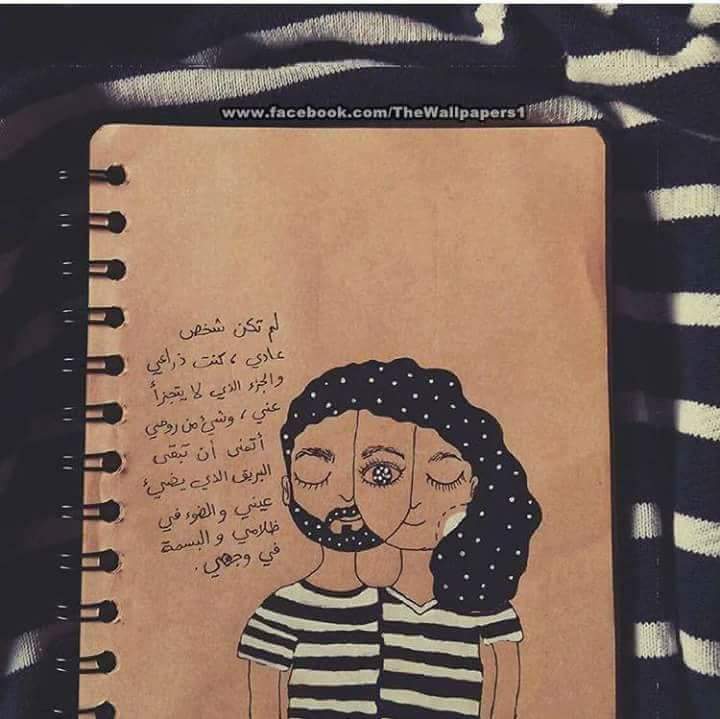 www.facebook.com/TheWallpapers1
لم تكن شخص
عادي ، كنت ذراعي
والجزء الذي لا يتجزأ
عني ، وشئ من روحي
أتمنى أن تبقى
البريق الذي يضيء
عيني و الضوء في
ظلامي و البسمة
في وجهي .